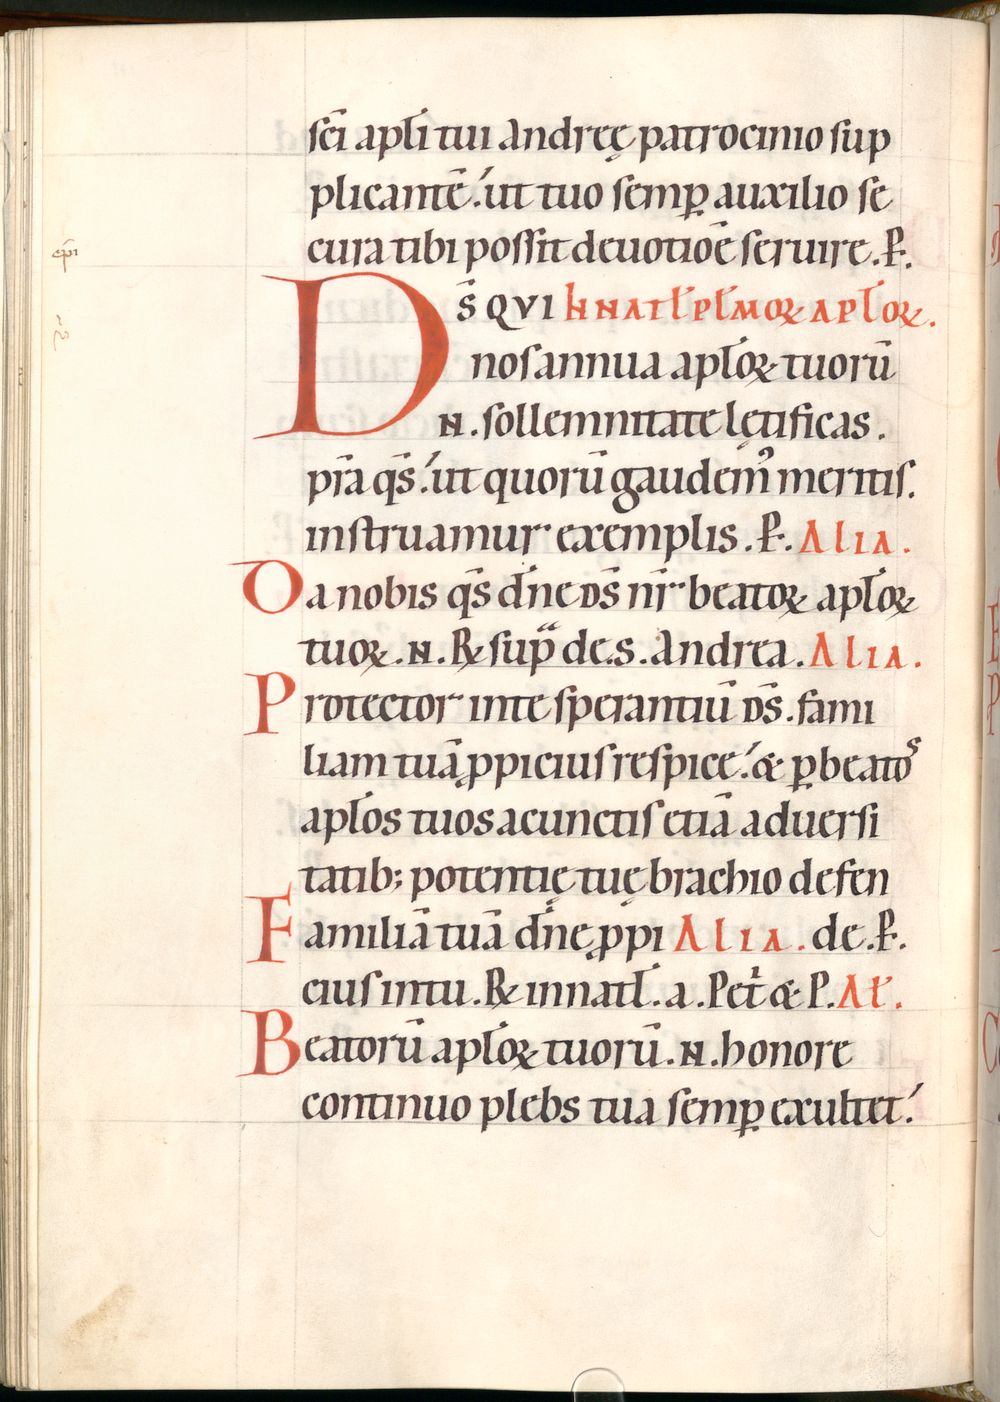 sc̄i apl̄i tui andreę patrocinio sup
plicantē. ut tuo semꝑ auxilio se
cura tibi possit deuotiōe seruire. P̶.
DS̄ QVI IN NATL̄ PL̄MOꝜ APL̄OꝜ.
nos annua apl̄oꝝ tuorū
N. sollemnitate lętificas.
pr̄a qs̄. ut quorū gaudem᾽ meritis.
instruamur exemplis. P̶. Alia.
Da nobis qs̄ dn̄e ds̄ nr̄ beatoꝝ apl̄oꝝ
tuoꝝ. N. ℞ sup̄ de. s. Andrea. Alia.
Protector in te sperantiū ds̄. fami
liam tuā ꝓpicius respice. & ꝑ beatos
apl̄os tuos a cunctis etiā aduersi
tatib; potentię tuę brachio defen
Familiā tuā dn̄e ꝓpi Alia. de. P̶.
cius intu. ℞ in natl̄. a. Pet̄ & P. Al̄.
Beatorū apl̄oꝝ tuorū. N. honore
continuo plebs tua semꝑ exultet.